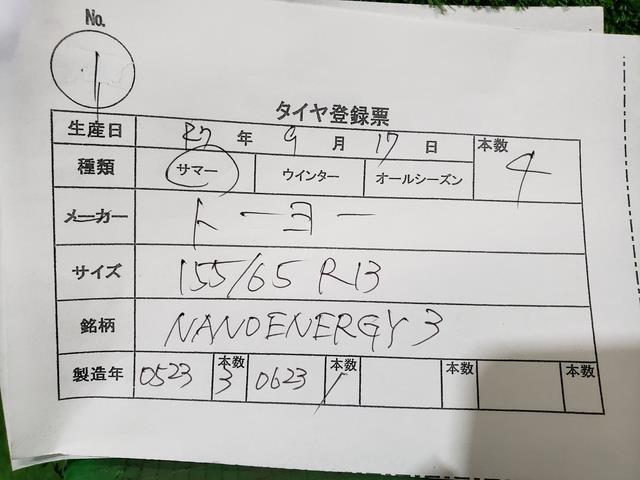 No.
1
タイヤ登録票
生産日 R7 年 9 月 17 日 本数 4
種類 サマー ウインター オールシーズン
メーカー トーヨー
サイズ 155/65 R13
銘柄 NANOENERGY 3
製造年 0523 本数 3 0623 本数 1 本数 本数